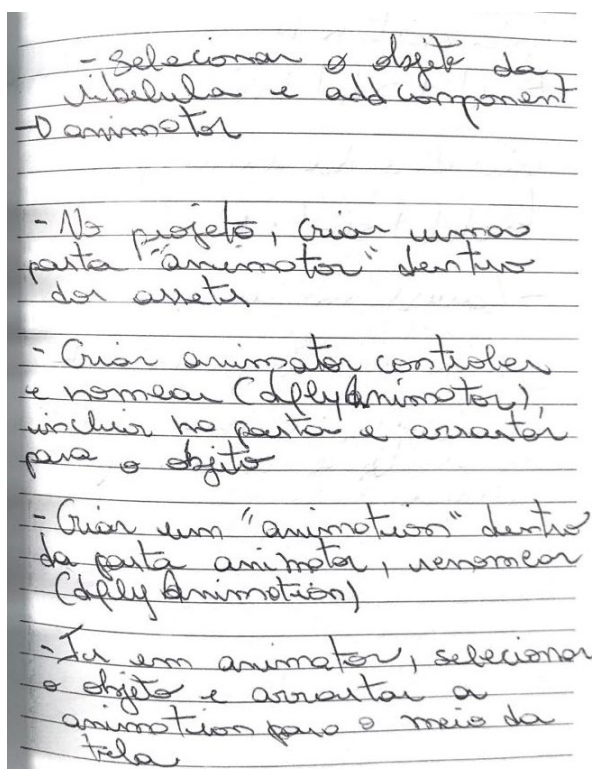 - Selecionar o objeto da
libelula e add component
→ animator
- No projeto, criar uma
pasta "animator" dentro
dos assets
- Criar animator controller
e nomear (dflyAnimator),
incluir na pasta e arrastar
para o objeto
- Criar um "animation" dentro
da pasta animator, renomear
(dflyAnimation)
- Ir em animator, selecionar
o objeto e arrastar a
animation para o meio da
tela